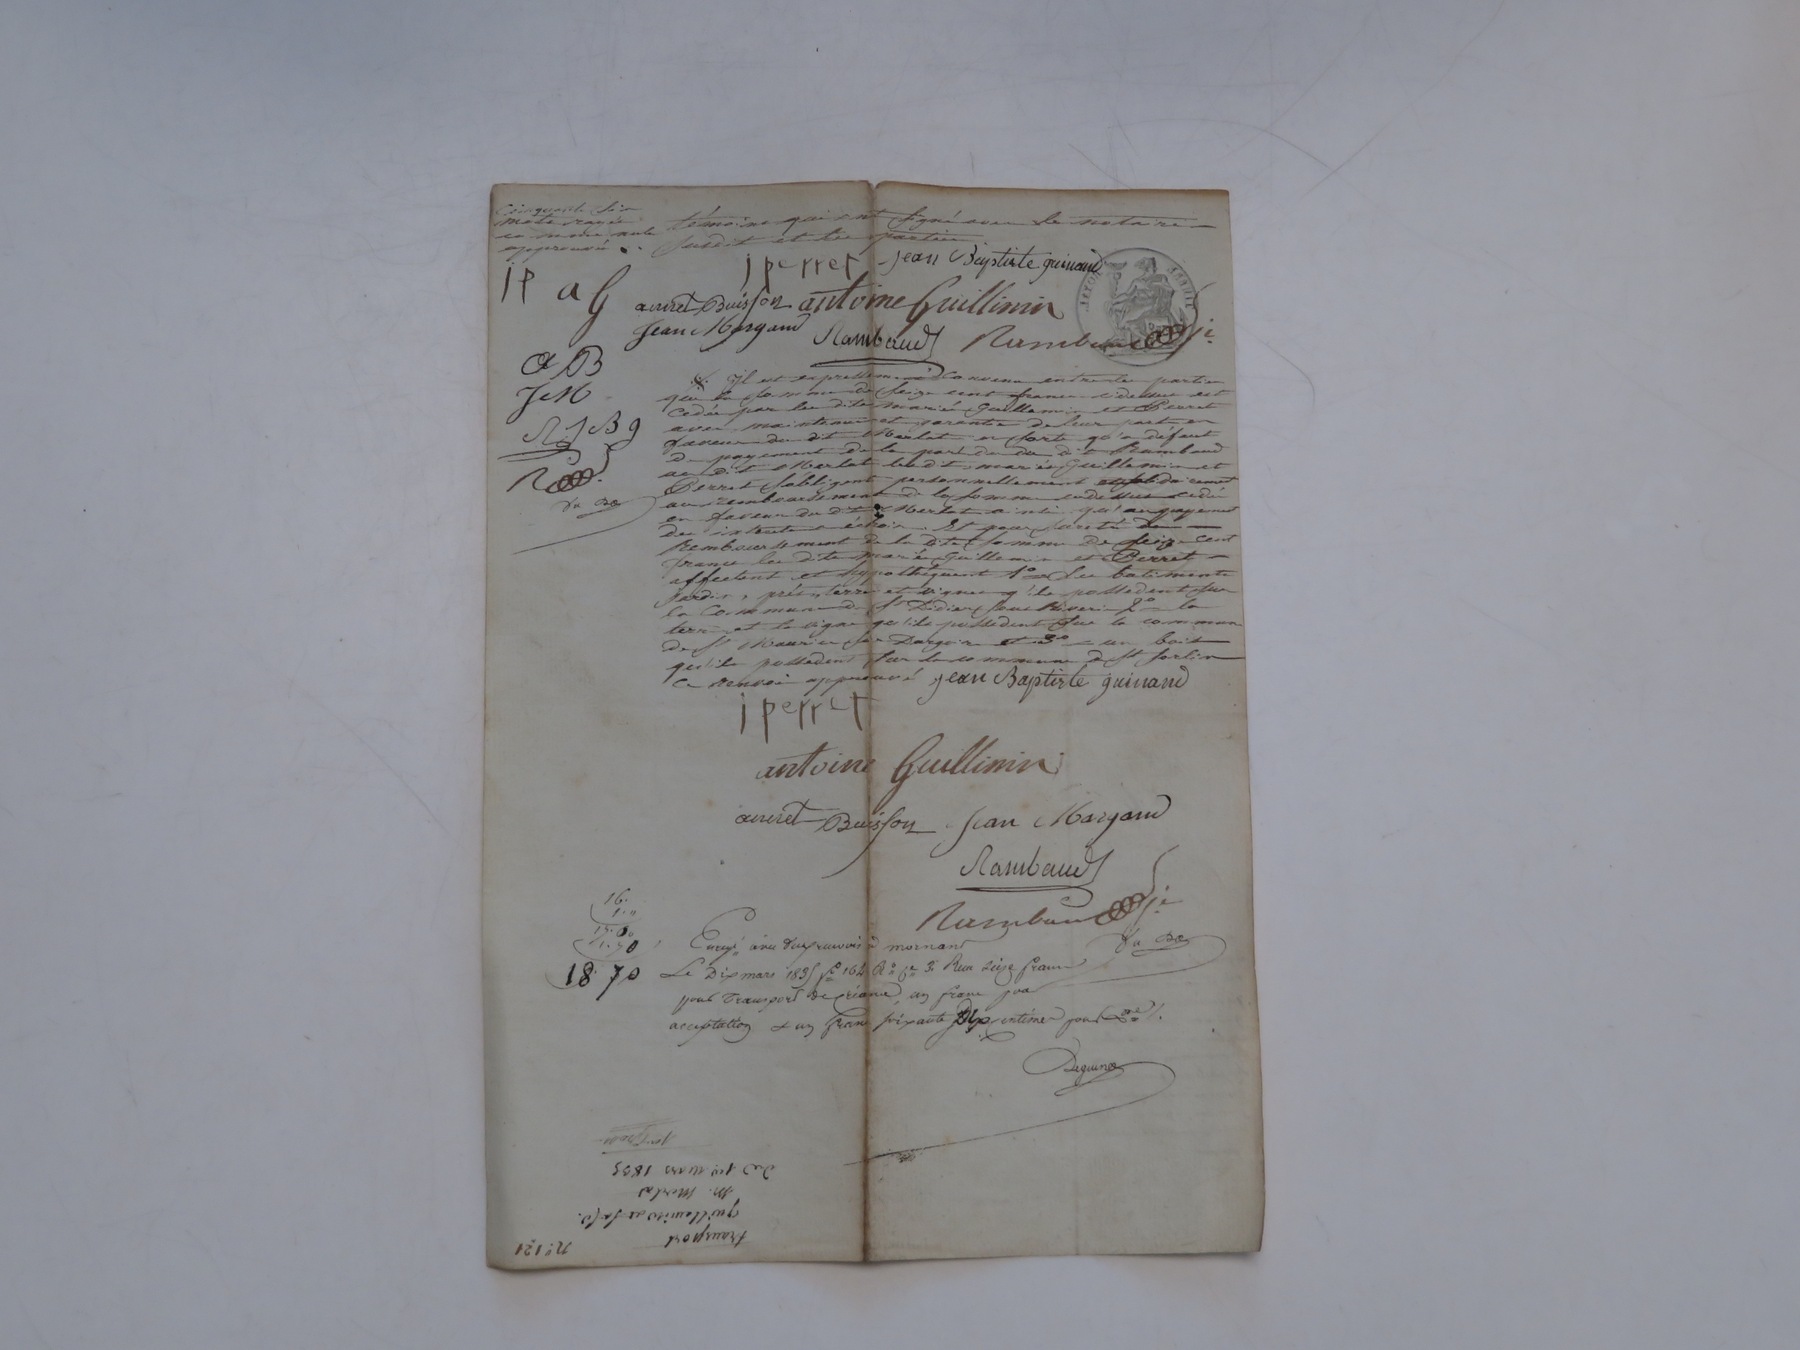 Cinquante six
mots rayés
comme nuls
approuvé.
témoins qui ont signé avec le notaire
susdit et les parties.
j perret jean Baptiste guinand
j P a G
annet Buisson antoine Guillimin
Jean Margand Rambaud Rambaud
a B
J M
R J B g
R
Il est expressément convenu entre les parties
que la somme de seize cent francs ci dessus est
cédée par les dits mariés Guillemin et Perret
avec maintenue et garantie de leur part en
faveur du dit Merlat en sorte qu'à défaut
de payement de la part du dit Rambaud
au dit Merlat les dits mariés Guillemin et
Perret s'obligent personnellement et solidairement
au remboursement de la somme ci dessus cédée
en faveur du dit Merlat ainsi qu'au payement
des intérêts à échoir. Et pour sureté du
remboursement de la dite somme de seize cent
francs les dits mariés Guillemin et Perret
affectent et hypothèquent 1° les batiments
jardin, prés, terres et vignes qu'ils possèdent sur
la Commune de St Didier sous Riverie 2° la
terre et la vigne qu'ils possèdent sur la commune
de St Maurice sur Dargoire et 3° un bois
qu'ils possèdent sur la commune de St Sorlin
ce renvoi approuvé jean Baptiste guinand
j perret
antoine Guillimin
annet Buisson Jean Margand
Rambaud
Rambaud
16.
1.
17.00
1.70
18 70
Enreg. avec un renvoi à mornant
Le Dix mars 1835 f° 164 Reçu seize francs
pour Transport de créance, un franc pour
acceptation et un franc soixante Dix centimes pour
Deguine
N° 121
transport
guillemin
M. Merlat
Du 1er mars 1835